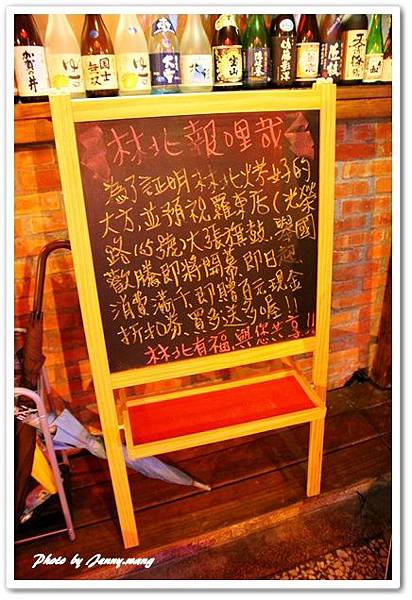 加賀の井
国士無双
林北報哩哉
為了証明林北烤好的
大方,並預祝羅東店(光榮
路15號)大張旗鼓、舉國
歡騰即將開幕,即日起
消費滿千即贈百元現金
折扣券,買多送多喔!!
林北有福,與您共享!!
Photo by Jenny.mang